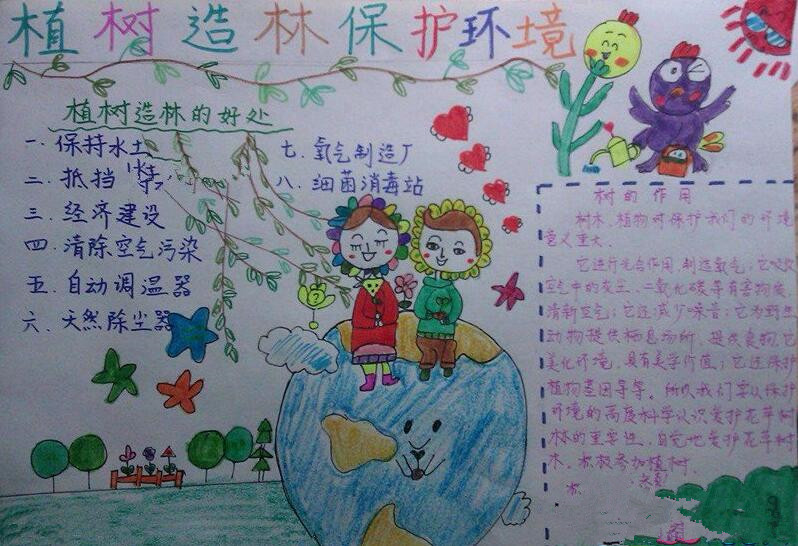 植树造林保护环境
植树造林的好处
一、保持水土
二、抵挡
三、经济建设
四、清除空气污染
五、自动调温器
六、天然除尘器
七、氧气制造厂
八、细菌消毒站
树的作用
树木、植物对保护我们的环境
意义重大。
它进行光合作用,制造氧气;它吸收
空气中的灰尘、二氧化碳等有害物质,
清新空气;它还减少噪音;它为野生
动物提供栖息场所,提供食物,它
美化环境,具有美学价值;它还保护
植物基因等等。所以我们要从保护
环境的高度科学认识爱护花草树
林的重要性,自觉地爱护花草树
木、积极参加植树